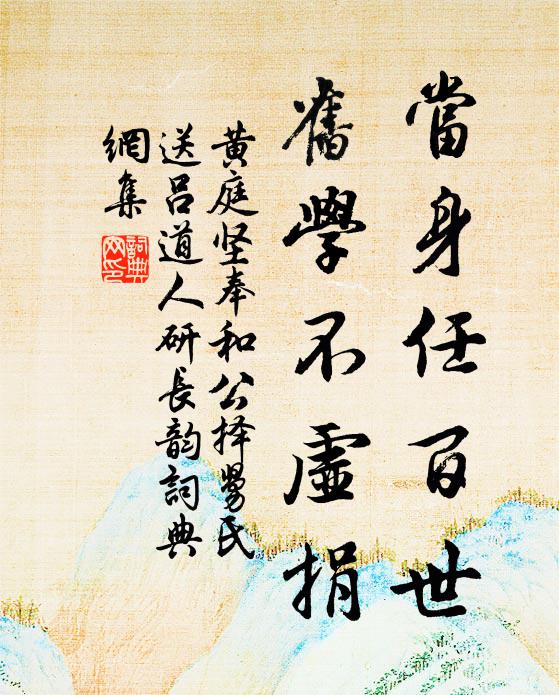 當身任百世
舊學不虛捐
黃庭坚奉和公择舅氏
送吕道人研長韵詞典
網集
詞典网印